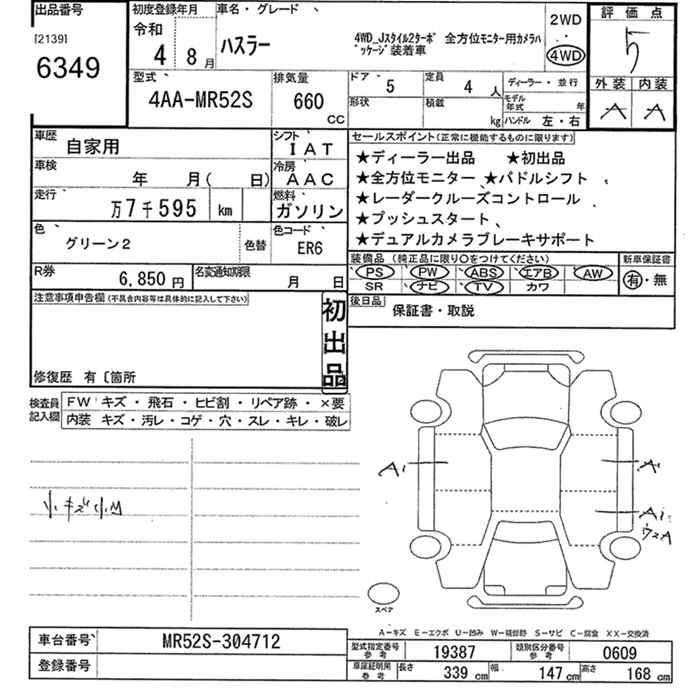 出品番号
[2139]
6349
初度登録年月
令和
4 8月
車名・グレード
ハスラー
4WD_Jスタイル2ターボ 全方位モニター用カメラパ
ッケージ装着車
2WD
・
4WD
評価点
5
外装 内装
A A
型式
4AA-MR52S
排気量
660
CC
ドア 5
定員 4 人
形状
積載 kg
ディーラー・並行
モデル年式 年
ハンドル 左・右
車歴 自家用
シフト IAT
車検 年 月( 日)
冷房 AAC
走行 万7千595 km
燃料 ガソリン
色 グリーン2
色替
色コード ER6
R券 6,850円
名変通知期限 月 日
セールスポイント(正常に機能するものに限ります)
★ディーラー出品 ★初出品
★全方位モニター ★パドルシフト
★レーダークルーズコントロール
★プッシュスタート
★デュアルカメラブレーキサポート
装備品 (純正品に限り○をつけてください)
PS PW ABS エアB AW
SR ナビ TV カワ
新車保証書
有・無
後日品
保証書・取説
注意事項申告欄(不具合内容等は具体的に記入して下さい)
初出品
修復歴 有〔箇所
検査員記入欄
FW キズ・飛石・ヒビ割・リペア跡・×要
内装 キズ・汚レ・コゲ・穴・スレ・キレ・破レ
小キズ小M
A1
A
A1
ウスA
スペア
A-キズ E-エクボ U-凹み W-補修跡 S-サビ C-腐食 XX-交換済
車台番号 MR52S-304712
登録番号
型式指定番号 参考 19387
類別区分番号 参考 0609
車庫証明用 参考 長さ 339 cm 幅 147 cm 高さ 168 cm